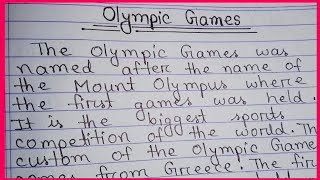 Olympic Games
The Olympic Games was
named after the name of
the Mount Olympus where
the first games was held.
It is the biggest sports
competition of the world. Th
custom of the Olympic Game
comes from Grreece. The firs